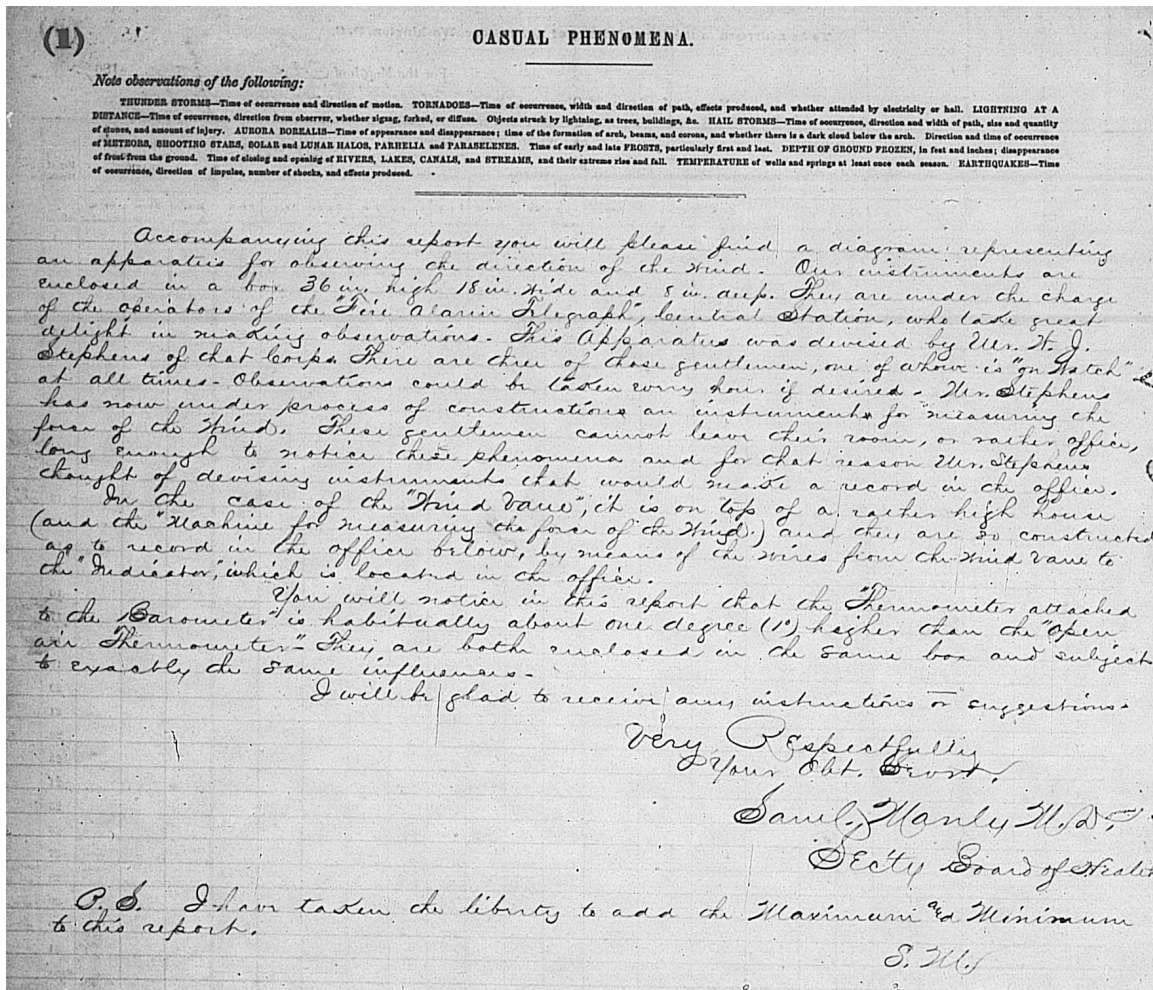 (1)
CASUAL PHENOMENA.
Note observations of the following:
THUNDER STORMS—Time of occurrence and direction of motion. TORNADOES—Time of occurrence, width and direction of path, effects produced, and whether attended by electricity or hail. LIGHTNING AT A
DISTANCE—Time of occurrence, direction from observer, whether zigzag, forked, or diffuse. Objects struck by lightning, as trees, buildings, &c. HAIL STORMS—Time of occurrence, direction and width of path, size and quantity
of stones, and amount of injury. AURORA BOREALIS—Time of appearance and disappearance; time of the formation of arch, beams, and corona, and whether there is a dark cloud below the arch. Direction and time of occurrence
of METEORS, SHOOTING STARS, SOLAR and LUNAR HALOS, PARHELIA and PARASELENES. Time of early and late FROSTS, particularly first and last. DEPTH OF GROUND FROZEN, in feet and inches; disappearance
of frost from the ground. Time of closing and opening of RIVERS, LAKES, CANALS, and STREAMS, and their extreme rise and fall. TEMPERATURE of wells and springs at least once each season. EARTHQUAKES—Time
of occurrence, direction of impulse, number of shocks, and effects produced.
Accompanying this report you will please find a diagram representing
an apparatus for observing the direction of the Wind. Our instruments are
enclosed in a box 36 in. high 18 in. wide and 8 in. deep. They are under the charge
of the operators of the "Fire Alarm Telegraph", Central Station, who take great
delight in making observations. This Apparatus was devised by Mr. W. J.
Stephens of that Corps. There are three of those gentlemen, one of whom is "on Watch"
at all times - Observations could be taken every hour if desired. Mr. Stephens
has now under process of construction an instrument for measuring the
force of the Wind. These gentlemen cannot leave their room, or rather office,
long enough to notice these phenomena and for that reason Mr. Stephens
thought of devising instruments that would make a record in the office.
In the case of the "Wind Vane", it is on top of a rather high house
(and the "Machine for measuring the force of the Wind.) and they are so constructed
as to record in the office below, by means of the wires from the Wind Vane to
the "Indicator," which is located in the office.
You will notice in this report that the "Thermometer attached
to the Barometer" is habitually about one degree (1°) higher than the "Open
air Thermometer" - They are both enclosed in the same box and subject
to exactly the same influences -
I will be glad to receive any instructions or suggestions -
Very Respectfully
Your Obt. Servt.
Saml. Manly M.D.
Sect'y Board of Health
P.S. I have taken the liberty to add the Maximum and Minimum
to this report.
S. M.